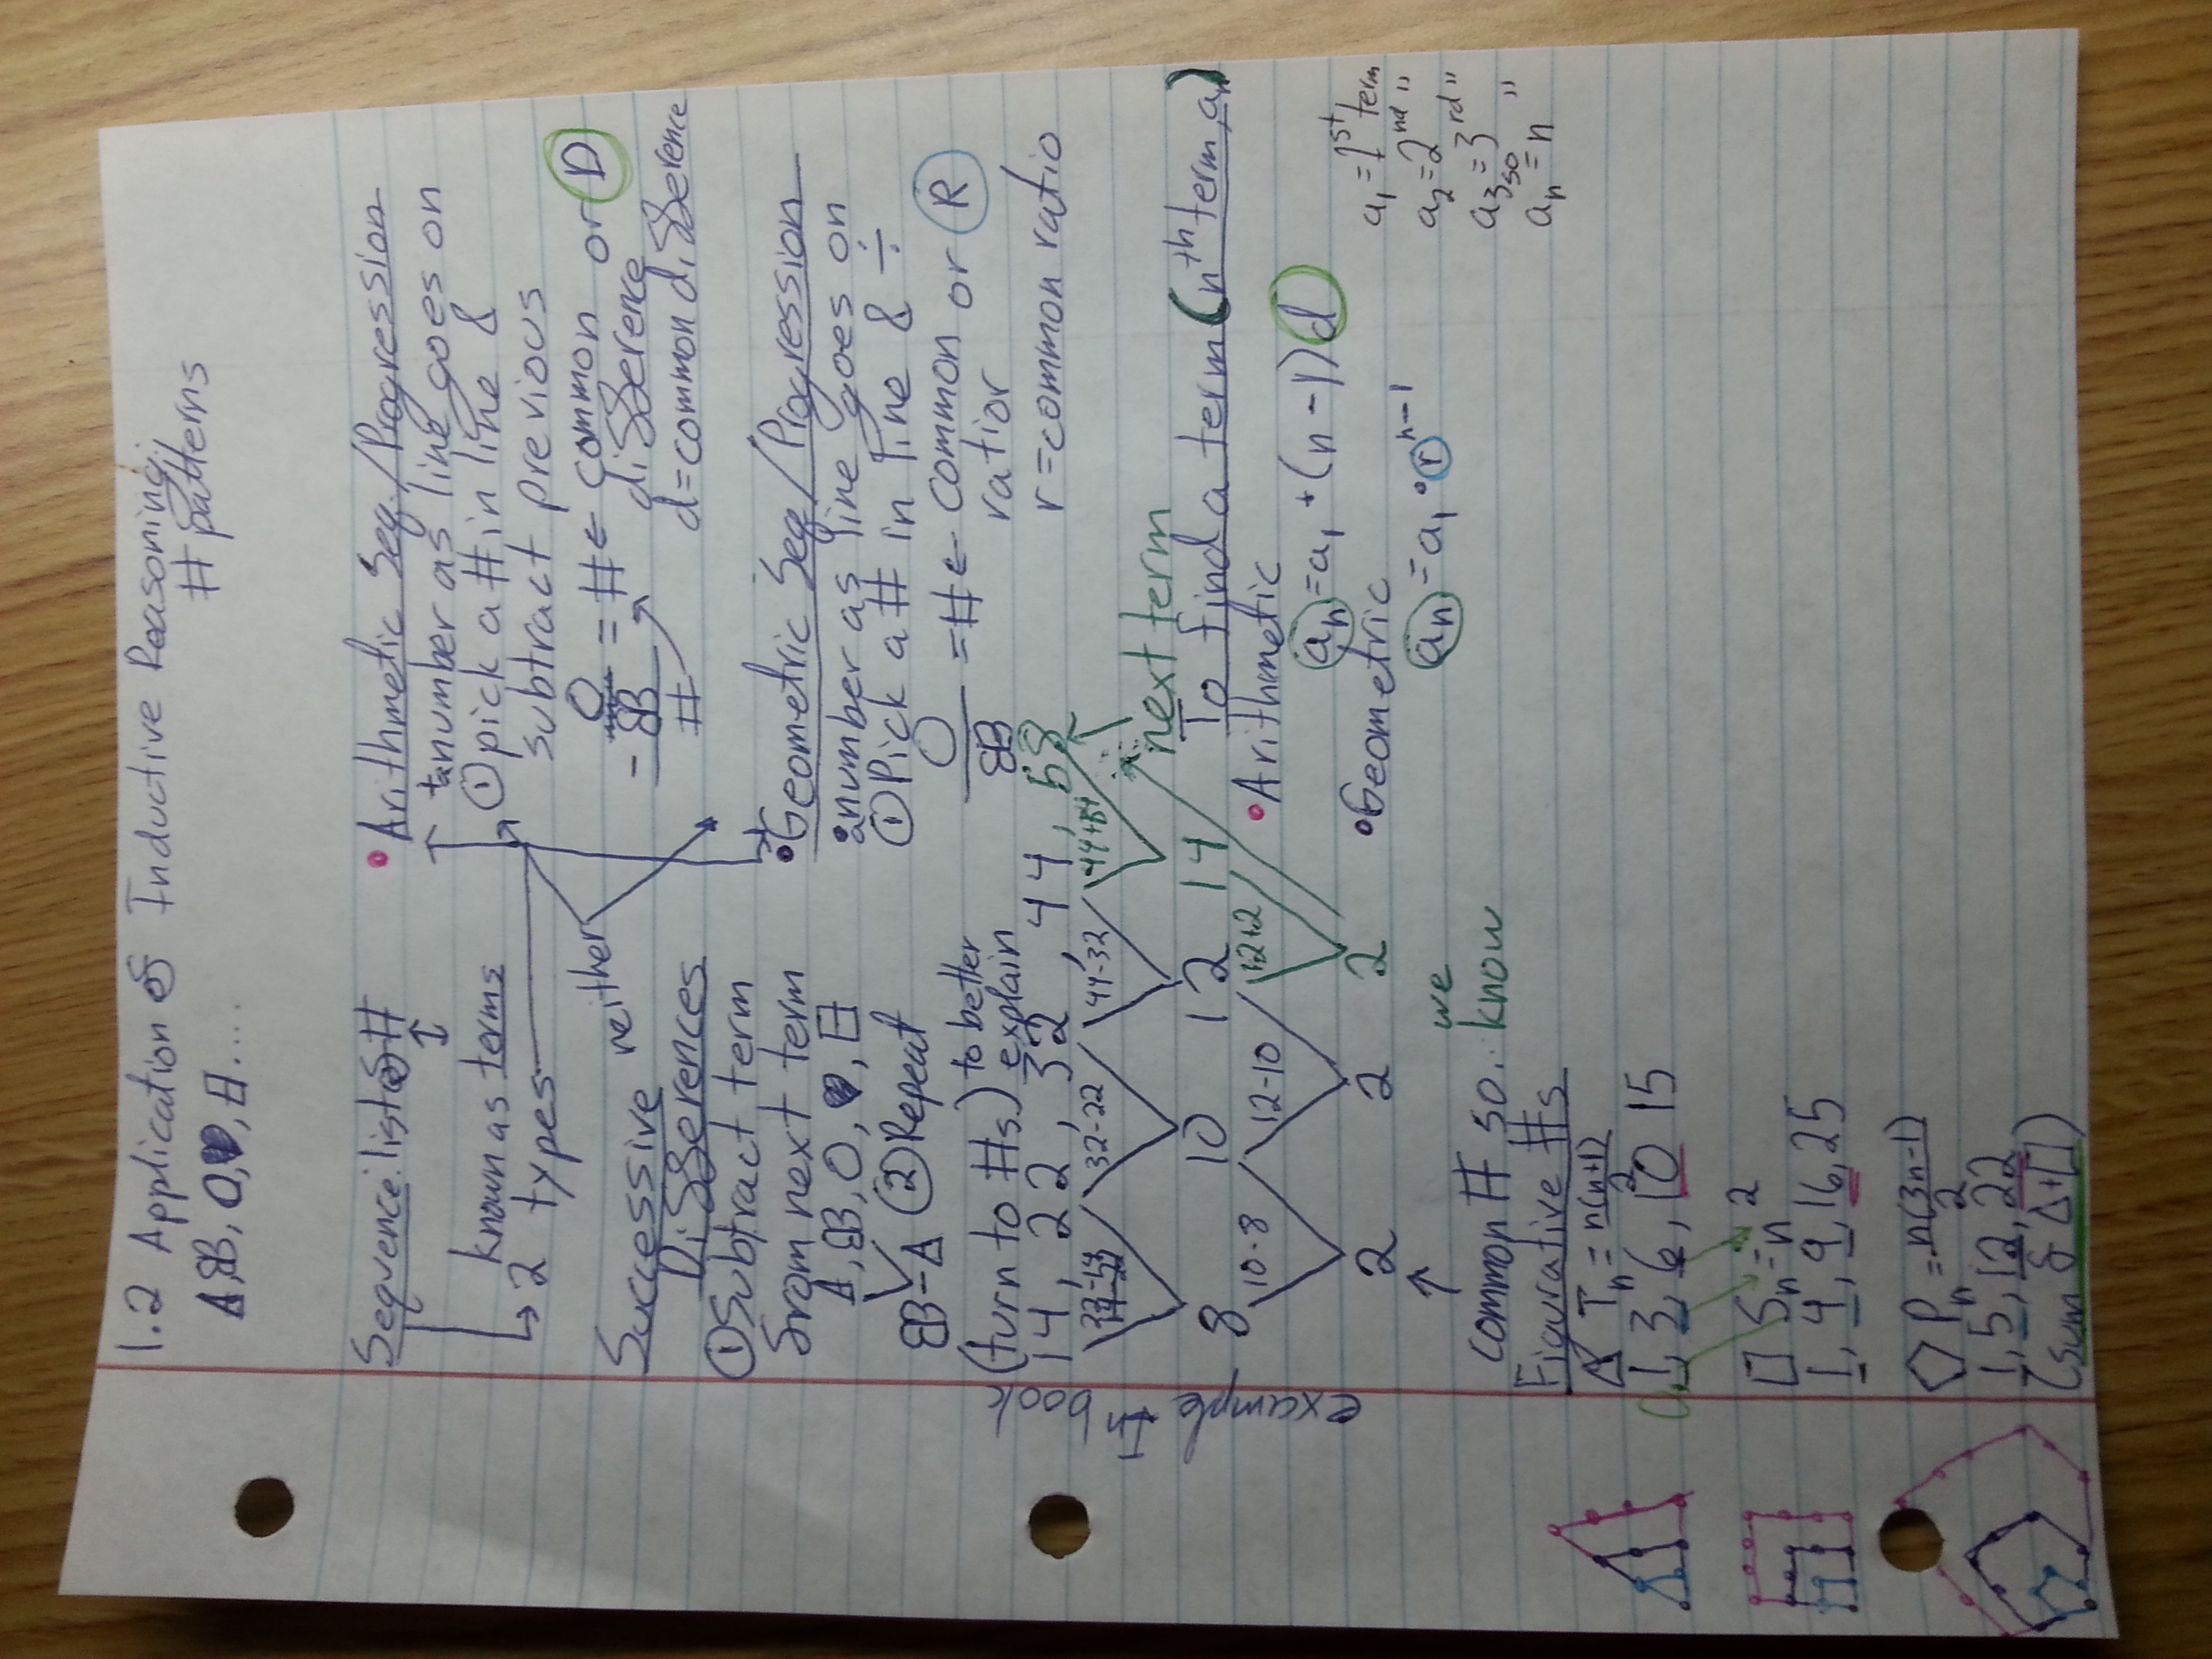 1.2 Application of Inductive Reasoning:
# patterns
A, B, O, ♥, 日....
Sequence: list of #
known as terms
↳ 2 types
neither
• Arithmetic Seq./Progression
number as line goes on
① pick a # in line &
subtract previous
O
- B
#
= # ← common or D
difference
d = common difference
Successive
Differences
① Subtract term
from next term
A, B, O, ♥, 日
B - A ② Repeat
(turn to #s) to better
explain
• Geometric Seq/Progression
number as line goes on
① Pick a # in line & ÷
O
B
= # ← common or R
ratior
r = common ratio
14, 22, 32, 44, 58
32-22 44-32
8 10 12 14
10-8 12-10 12+2
2 2 2
next term
↑
common # so: we
know
example
book
To find a term (nth term, an)
• Arithmetic
an = a1 + (n-1)d
• Geometric
an = a1 • r n-1
a1 = 1st term
a2 = 2nd "
a3 = 3rd "
so
an = n "
Figurative #s
△ Tn = n(n+1)
2
1, 3, 6, 10 15
□ Sn = n 2
1, 4, 9, 16, 25
⬠ Pn = n(3n-1)
2
1, 5, 12, 22
(sum of △+□)